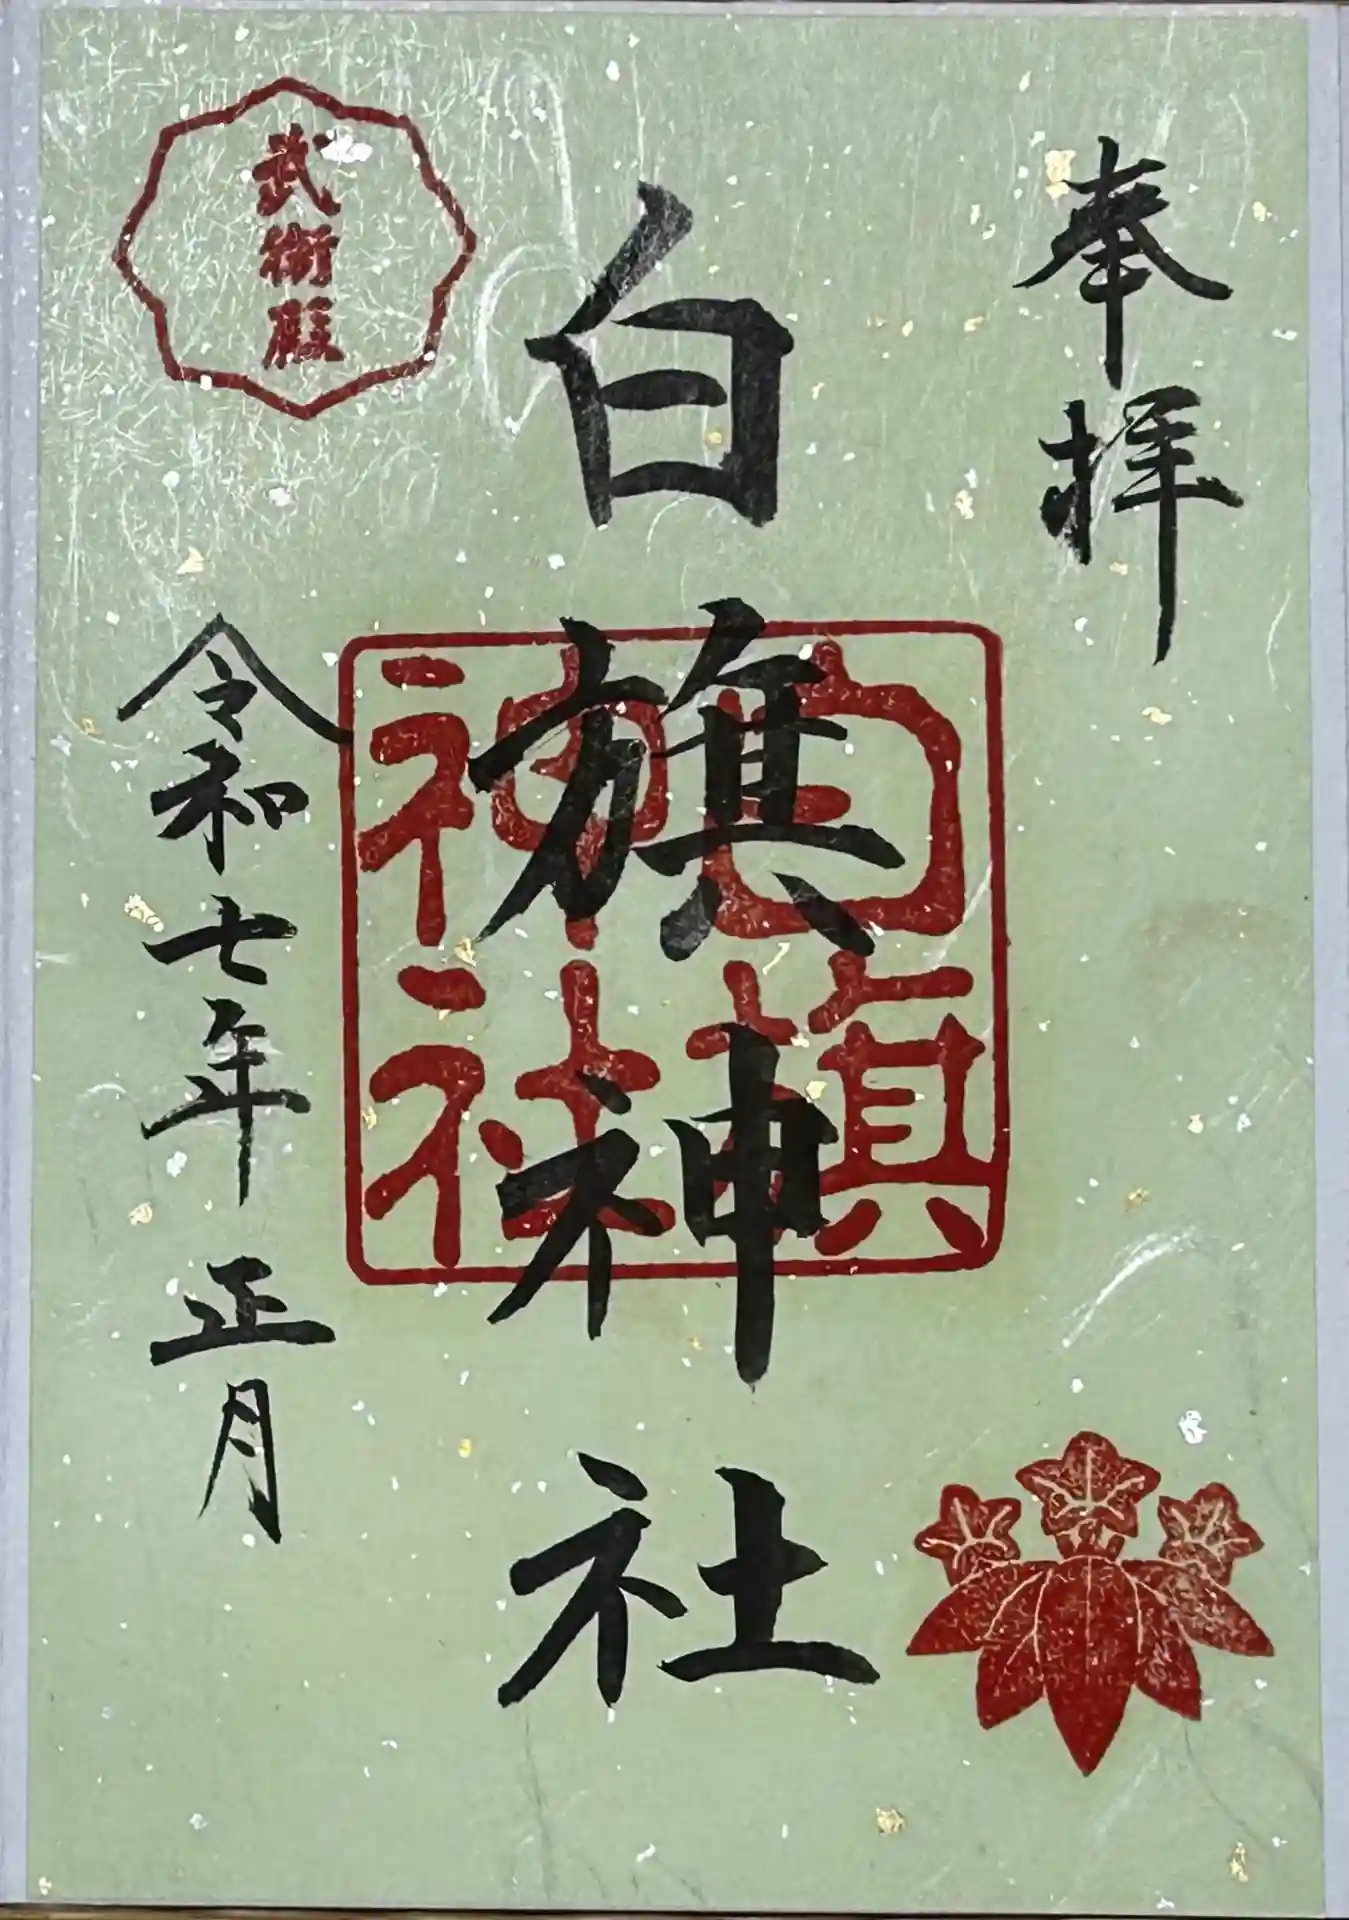 奉拝
白旗神社
白旗
神社
武術殿
令和七年正月